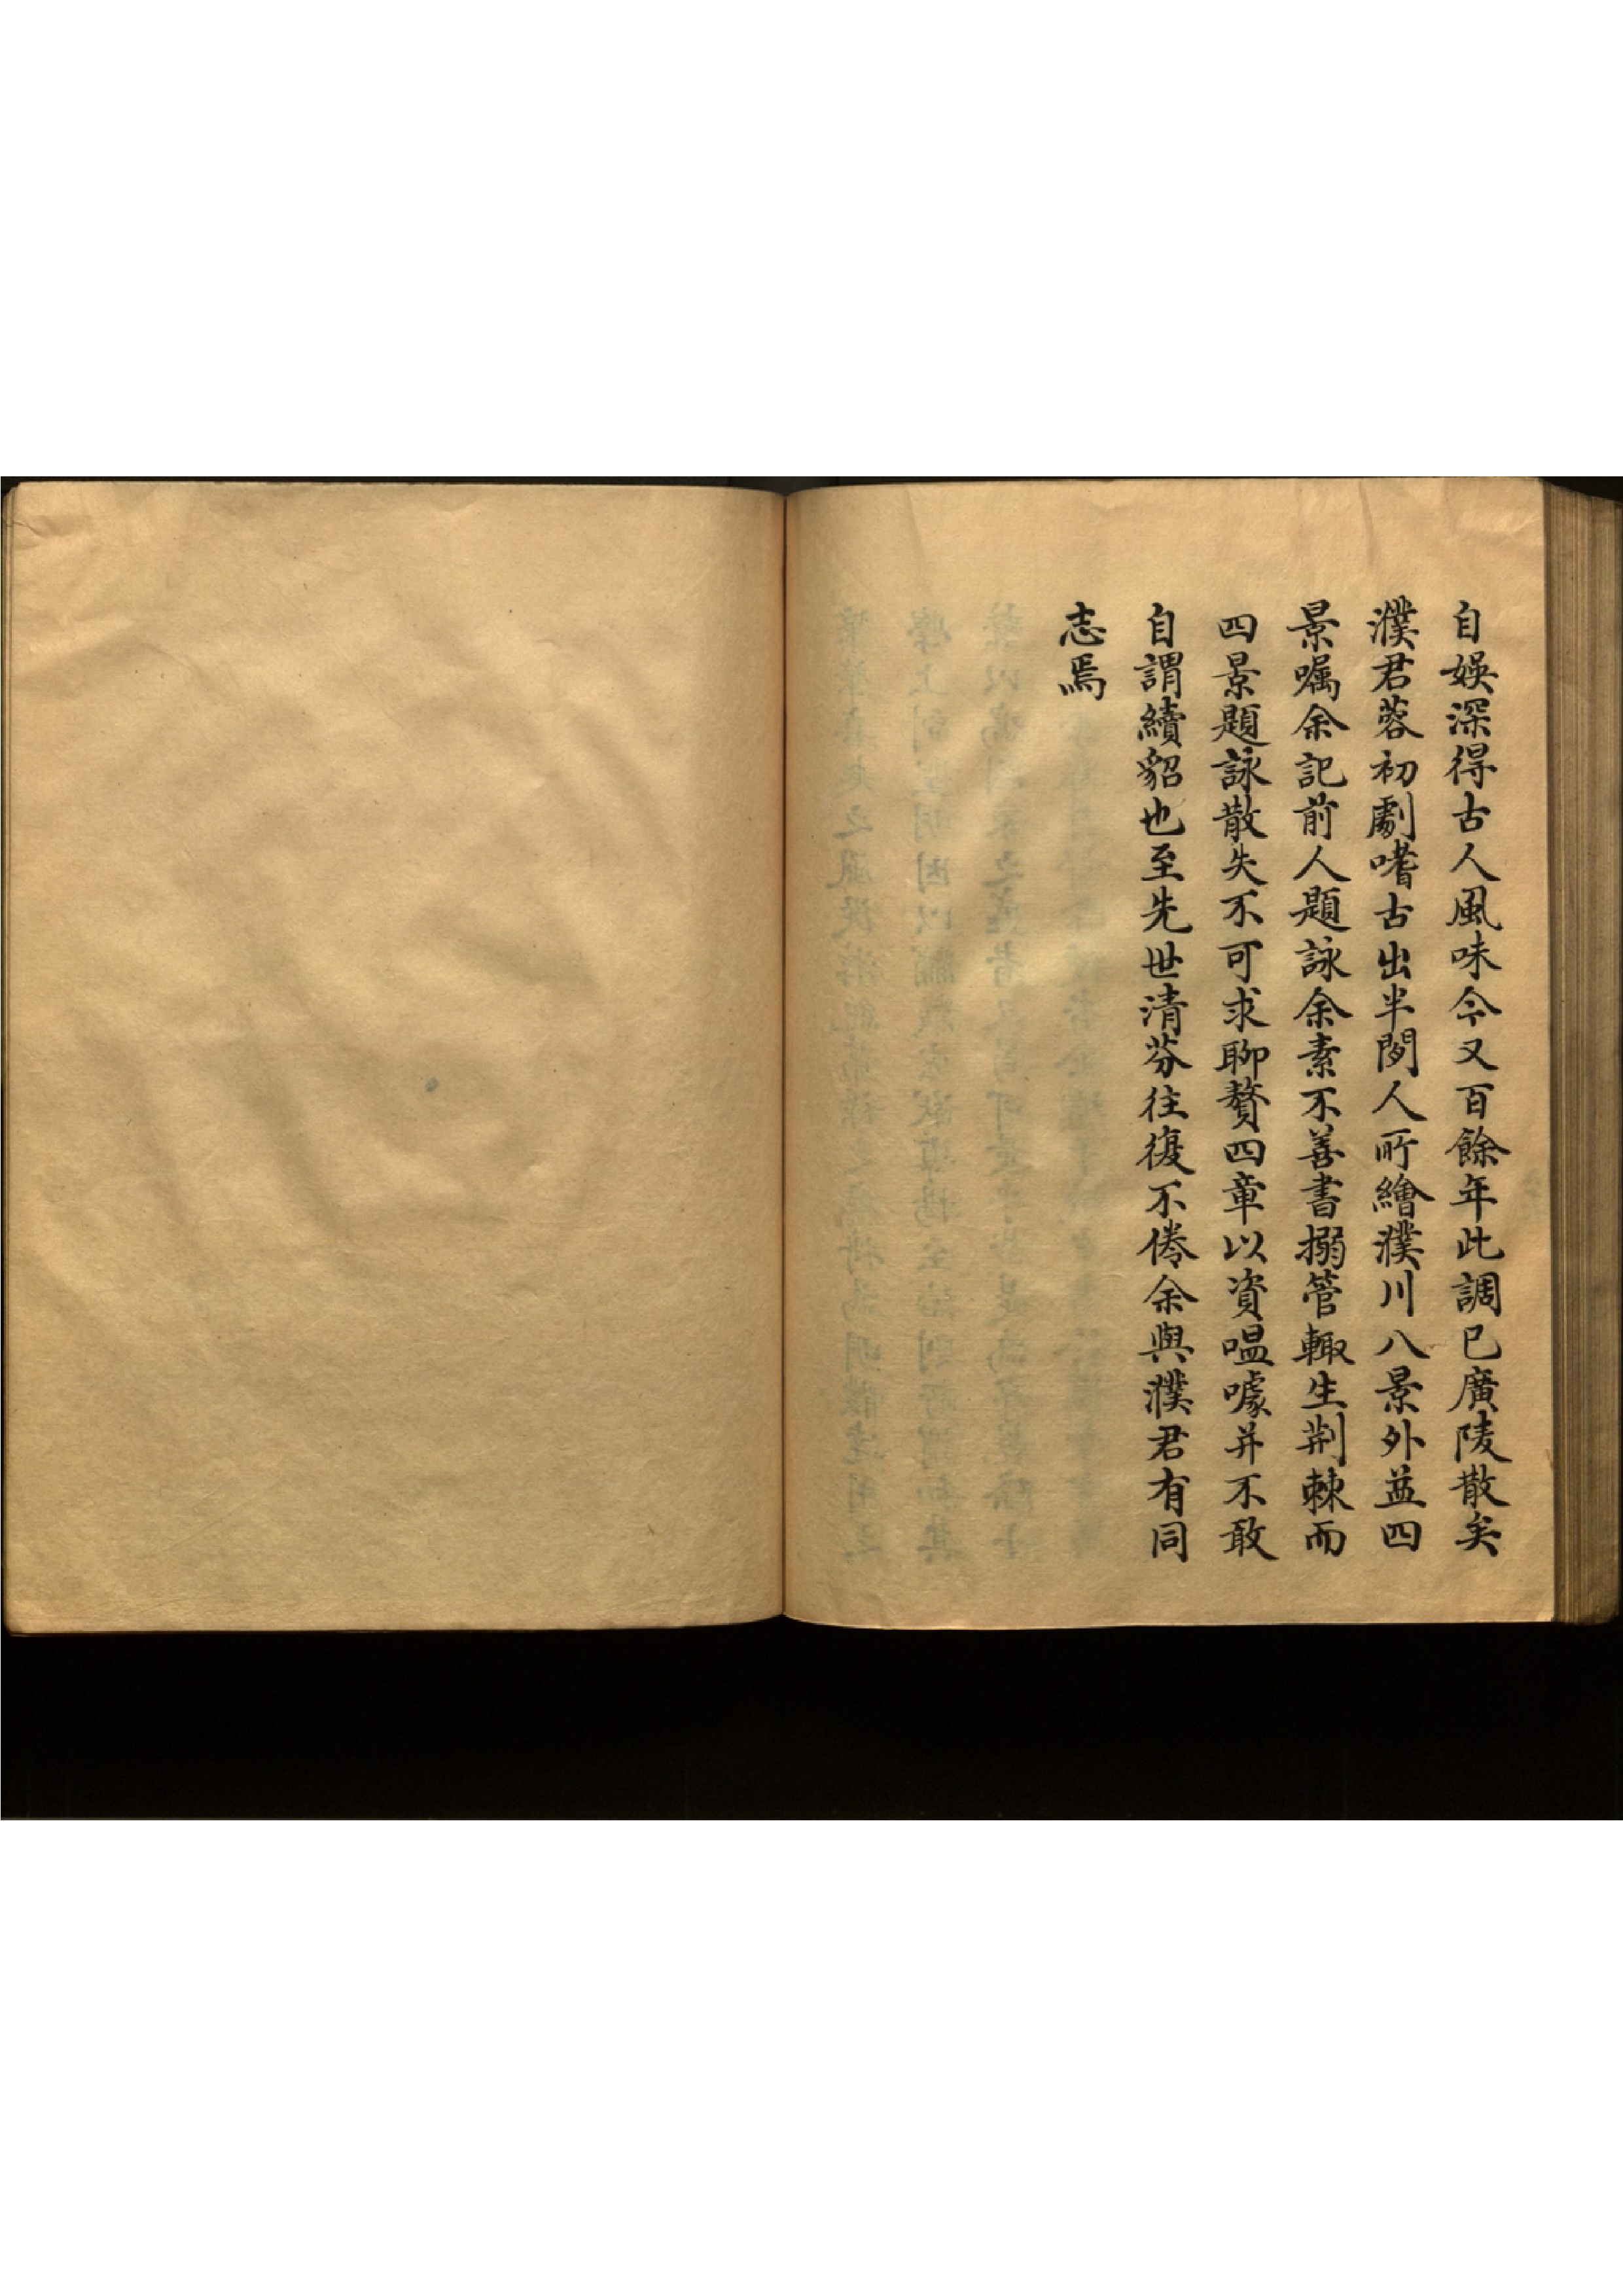 自娛深得古人風味今又百餘年此調已廣陵散矣
濮君蓉初劇嗜古出半閡人所繪濮川八景外益四
景囑余記前人題詠余素不善書搦管輙生荆棘而
四景題詠散失不可求聊贅四章以資嗢噱并不敢
自謂續貂也至先世清芬往復不倦余與濮君有同
志焉